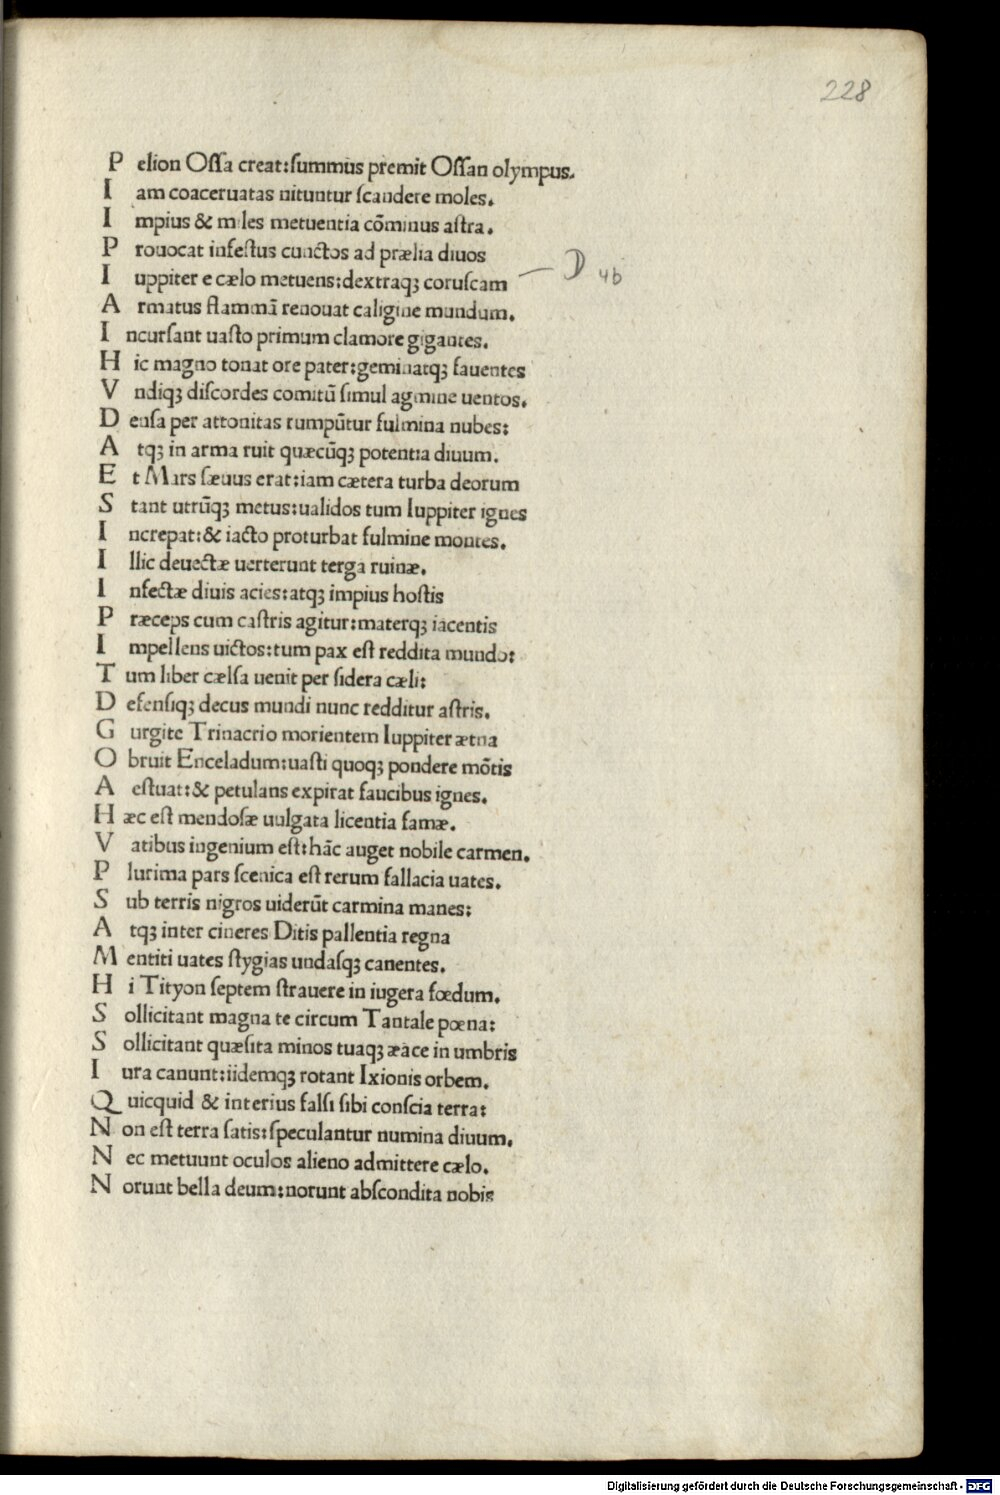 228
P elion Oſſa creat:ſummus premit Oſſan olympus.
I am coaceruatas nituntur ſcandere moles.
I mpius & miles metuentia cōminus aſtra.
P rouocat infeſtus cunctos ad prælia diuos
I uppiter e cælo metuens:dextraqꝫ coruſcam
D 4b
A rmatus flammā renouat caligine mundum.
I ncurſant uaſto primum clamore gigantes.
H ic magno tonat ore pater:geminatqꝫ fauentes
V ndiqꝫ diſcordes comitū ſimul agmine uentos.
D enſa per attonitas rumpūtur fulmina nubes:
A tqꝫ in arma ruit quæcūqꝫ potentia diuum.
E t Mars ſæuus erat:iam cætera turba deorum
S tant utrūqꝫ metus:ualidos tum Iuppiter ignes
I ncrepat:& iacto proturbat fulmine montes.
I llic deuectæ uerterunt terga ruinæ.
I nfectæ diuis acies:atqꝫ impius hoſtis
P ræceps cum caſtris agitur:materqꝫ iacentis
I mpellens uictos:tum pax eſt reddita mundo:
T um liber cælſa uenit per ſidera cæli:
D efenſiqꝫ decus mundi nunc redditur aſtris.
G urgite Trinacrio morientem Iuppiter ætna
O bruit Enceladum:uaſti quoqꝫ pondere mōtis
A eſtuat:& petulans expirat faucibus ignes.
H æc eſt mendoſæ uulgata licentia famæ.
V atibus ingenium eſt:hāc auget nobile carmen.
P lurima pars ſcenica eſt rerum fallacia uates.
S ub terris nigros uiderūt carmina manes:
A tqꝫ inter cineres Ditis pallentia regna
M entiti uates ſtygias undaſqꝫ canentes.
H i Tityon ſeptem ſtrauere in iugera fœdum.
S ollicitant magna te circum Tantale pœna:
S ollicitant quæſita minos tuaqꝫ æace in umbris
I ura canunt:iidemqꝫ rotant Ixionis orbem.
Q uicquid & interius falſi ſibi conſcia terra:
N on eſt terra ſatis:ſpeculantur numina diuum.
N ec metuunt oculos alieno admittere cælo.
N orunt bella deum:norunt abſcondita nobis
Digitalisierung gefördert durch die Deutsche Forschungsgemeinschaft - DFG